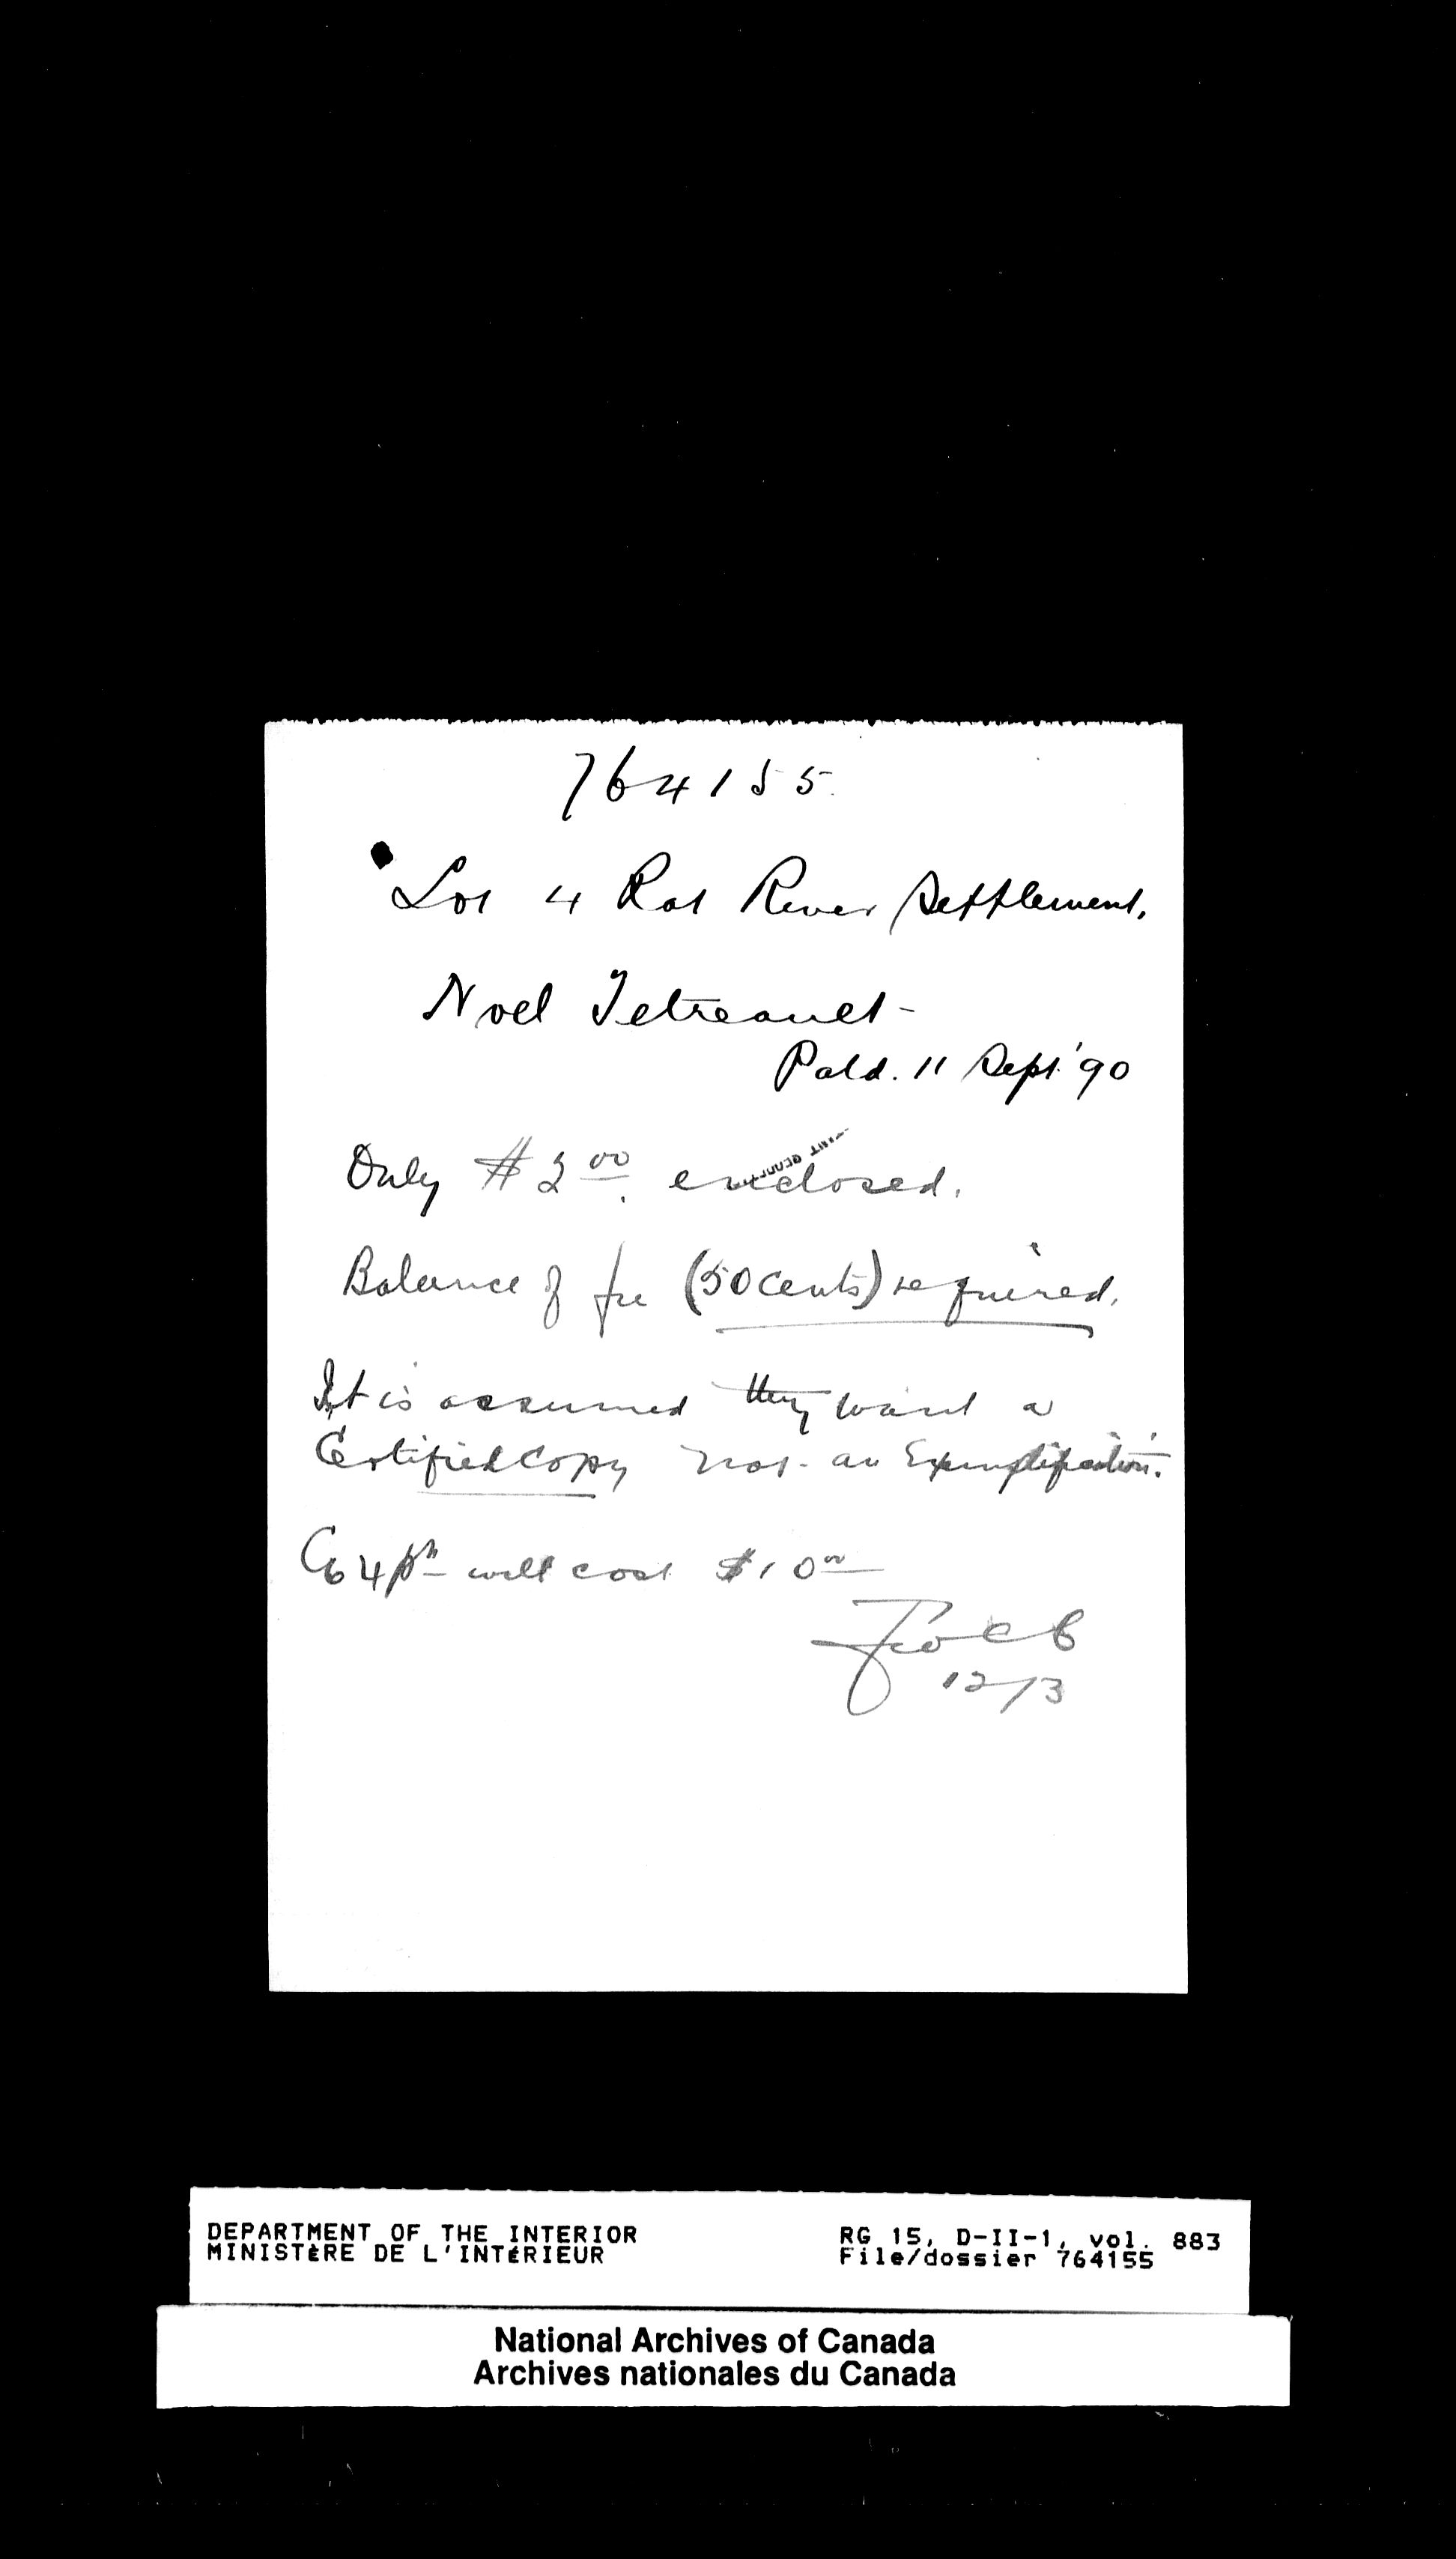 764155.
Lot 4 Rat River Settlement.
Noel Tetreault -
Patd. 11 Sept. '90
Only $2 00. enclosed.
Balance of fee (50 cents) required.
It is assumed they want a
Certified Copy not an Exemplification.
will cost $10 00
12/3
DEPARTMENT OF THE INTERIOR
MINISTÈRE DE L'INTÉRIEUR
RG 15, D-II-1, vol. 883
File/dossier 764155
National Archives of Canada
Archives nationales du Canada